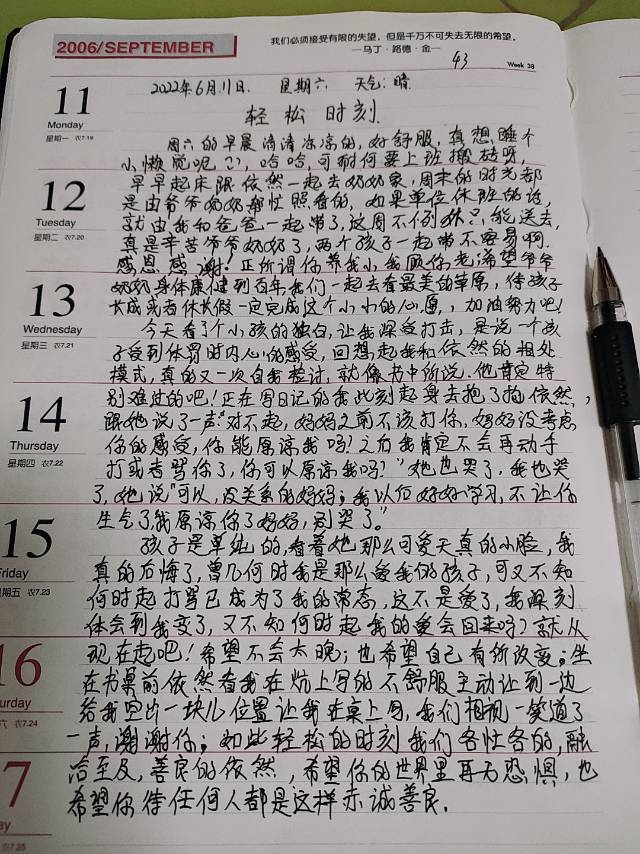 2006/SEPTEMBER
我们必须接受有限的失望，但是千万不可失去无限的希望。
—马丁·路德·金—
43
Week 38
11
Monday
星期一 农7.19
12
Tuesday
星期二 农7.20
13
Wednesday
星期三 农7.21
14
Thursday
星期四 农7.22
15
Friday
星期五 农7.23
16
turday
六 农7.24
7
ay
农7.25
2022年6月11日. 星期六 天气:晴
轻松时刻.
周六的早晨清清凉凉的,好舒服,真想睡个
小懒觉呢,哈哈,可奈何要上班搬砖呀,
早早起床跟依然一起去奶奶家,周末的时光都
是由爷爷奶奶帮忙照看的,如果单位休班的话,
就由我和爸爸一起带了,这周不倒休只能送去,
真是辛苦爷爷奶奶了,两个孩子一起带不容易啊.
感恩,感谢!正所谓你养我小,我顾你老,希望爷爷
奶奶身体康健到百年,我们一起去看最美的草原,待孩子
长成或者休长假一定完成这个小小的心愿,加油努力吧!
今天看了个小孩的独白,让我深受打击,是说一个孩
子受到体罚时内心的感受,回想起我和依然的相处
模式,真的又一次自我检讨,就像书中所说.他肯定特
别难过的吧!正在写日记的我此刻起身去抱了抱依然,
跟她说了一声:"对不起,妈妈之前不该打你,妈妈没考虑
你的感受,你能原谅我吗?之后我肯定不会再动手
打或者骂你了,你可以原谅我吗?"她也哭了,我也哭
了,她说"可以,没关系的妈妈;我以后好好学习,不让你
生气了,我原谅你了妈妈,别哭了."
孩子是单纯的,看着她那么可爱天真的小脸,我
真的后悔了,曾几何时我是那么爱我的孩子,可又不知
何时起打骂已成为了我的常态,这不是爱了,我深刻
体会到我变了,又不知何时起我的爱会回来吗?就从
现在起吧!希望不会太晚;也希望自己有所改变;坐
在书桌前依然看我在炕上写的不舒服主动让到一边
给我空出一块儿位置让我在桌上写,我们相视一笑道了
一声,谢谢你;如此轻松的时刻我们各忙各的,融
洽至及,善良的依然,希望你的世界里再无恐惧,也
希望你待任何人都是这样赤诚善良.